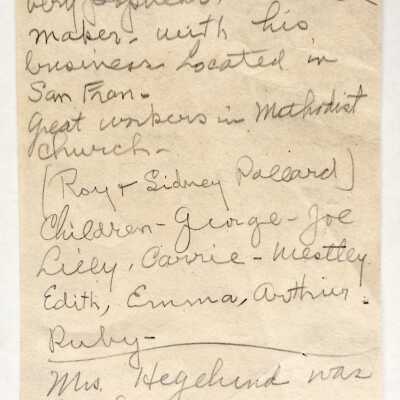 very
maker - with his
business located in
San Fran -
Great workers in Methodist
Church -
(Roy + Sidney Pollard)
Children - George - Joe
Lilly, Carrie - Westley
Edith, Emma, Arthur.
Ruby -
Mrs. Hegelund was